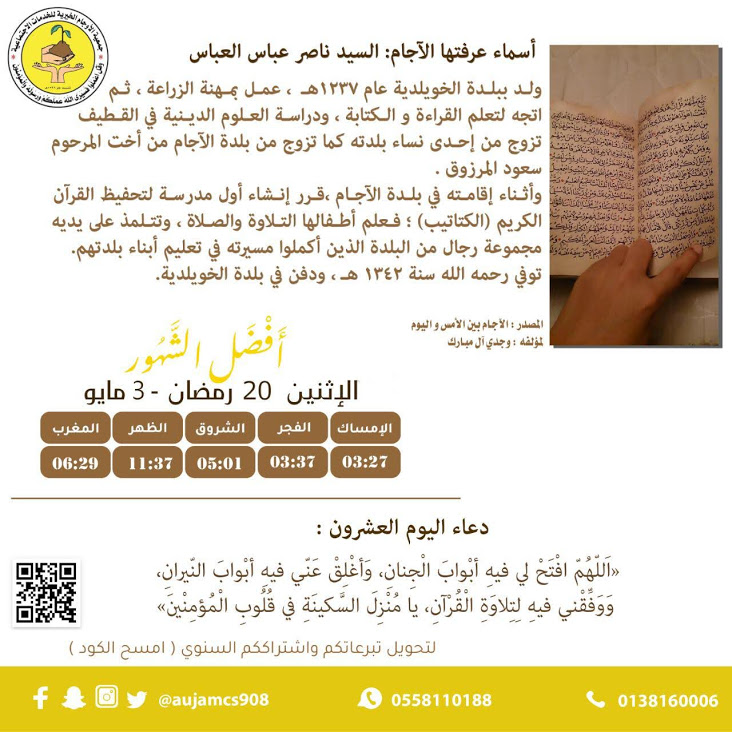 جمعية الأوجام الخيرية للخدمات الاجتماعية
وقل اعملوا فسيرى الله عملكم ورسوله والمؤمنون
أسماء عرفتها الآجام: السيد ناصر عباس العباس
ولد ببلدة الخويلدية عام ١٢٣٧هـ ، عمل بمهنة الزراعة ، ثم
اتجه لتعلم القراءة و الكتابة ، ودراسة العلوم الدينية في القطيف
تزوج من إحدى نساء بلدته كما تزوج من بلدة الآجام من أخت المرحوم
سعود المرزوق .
وأثناء إقامته في بلدة الآجام ،قرر إنشاء أول مدرسة لتحفيظ القرآن
الكريم (الكتاتيب) ؛ فعلم أطفالها التلاوة والصلاة ، وتتلمذ على يديه
مجموعة رجال من البلدة الذين أكملوا مسيرته في تعليم أبناء بلدتهم.
توفي رحمه الله سنة ١٣٤٢ هـ ، ودفن في بلدة الخويلدية.
المصدر : الآجام بين الأمس و اليوم
لمؤلفه : وجدي آل مبارك
أَفْضَل الشُّهُور
الإثنين 20 رمضان - 3 مايو
الإمساك الفجر الشروق الظهر المغرب
03:27 03:37 05:01 11:37 06:29
دعاء اليوم العشرون :
«اَللّهُمّ افْتَحْ لي فيهِ أبْوابَ الْجِنانِ، وَأغْلِقْ عَنّي فيهِ أبْوابَ النّيرانِ،
وَوَفِّقْني فيهِ لِتِلاوَةِ الْقُرْآنِ، يا مُنْزِلَ السَّكينَةِ في قُلُوبِ الْمُؤمِنْينَ»
لتحويل تبرعاتكم واشتراككم السنوي ( امسح الكود )
@aujamcs908 0558110188 0138160006